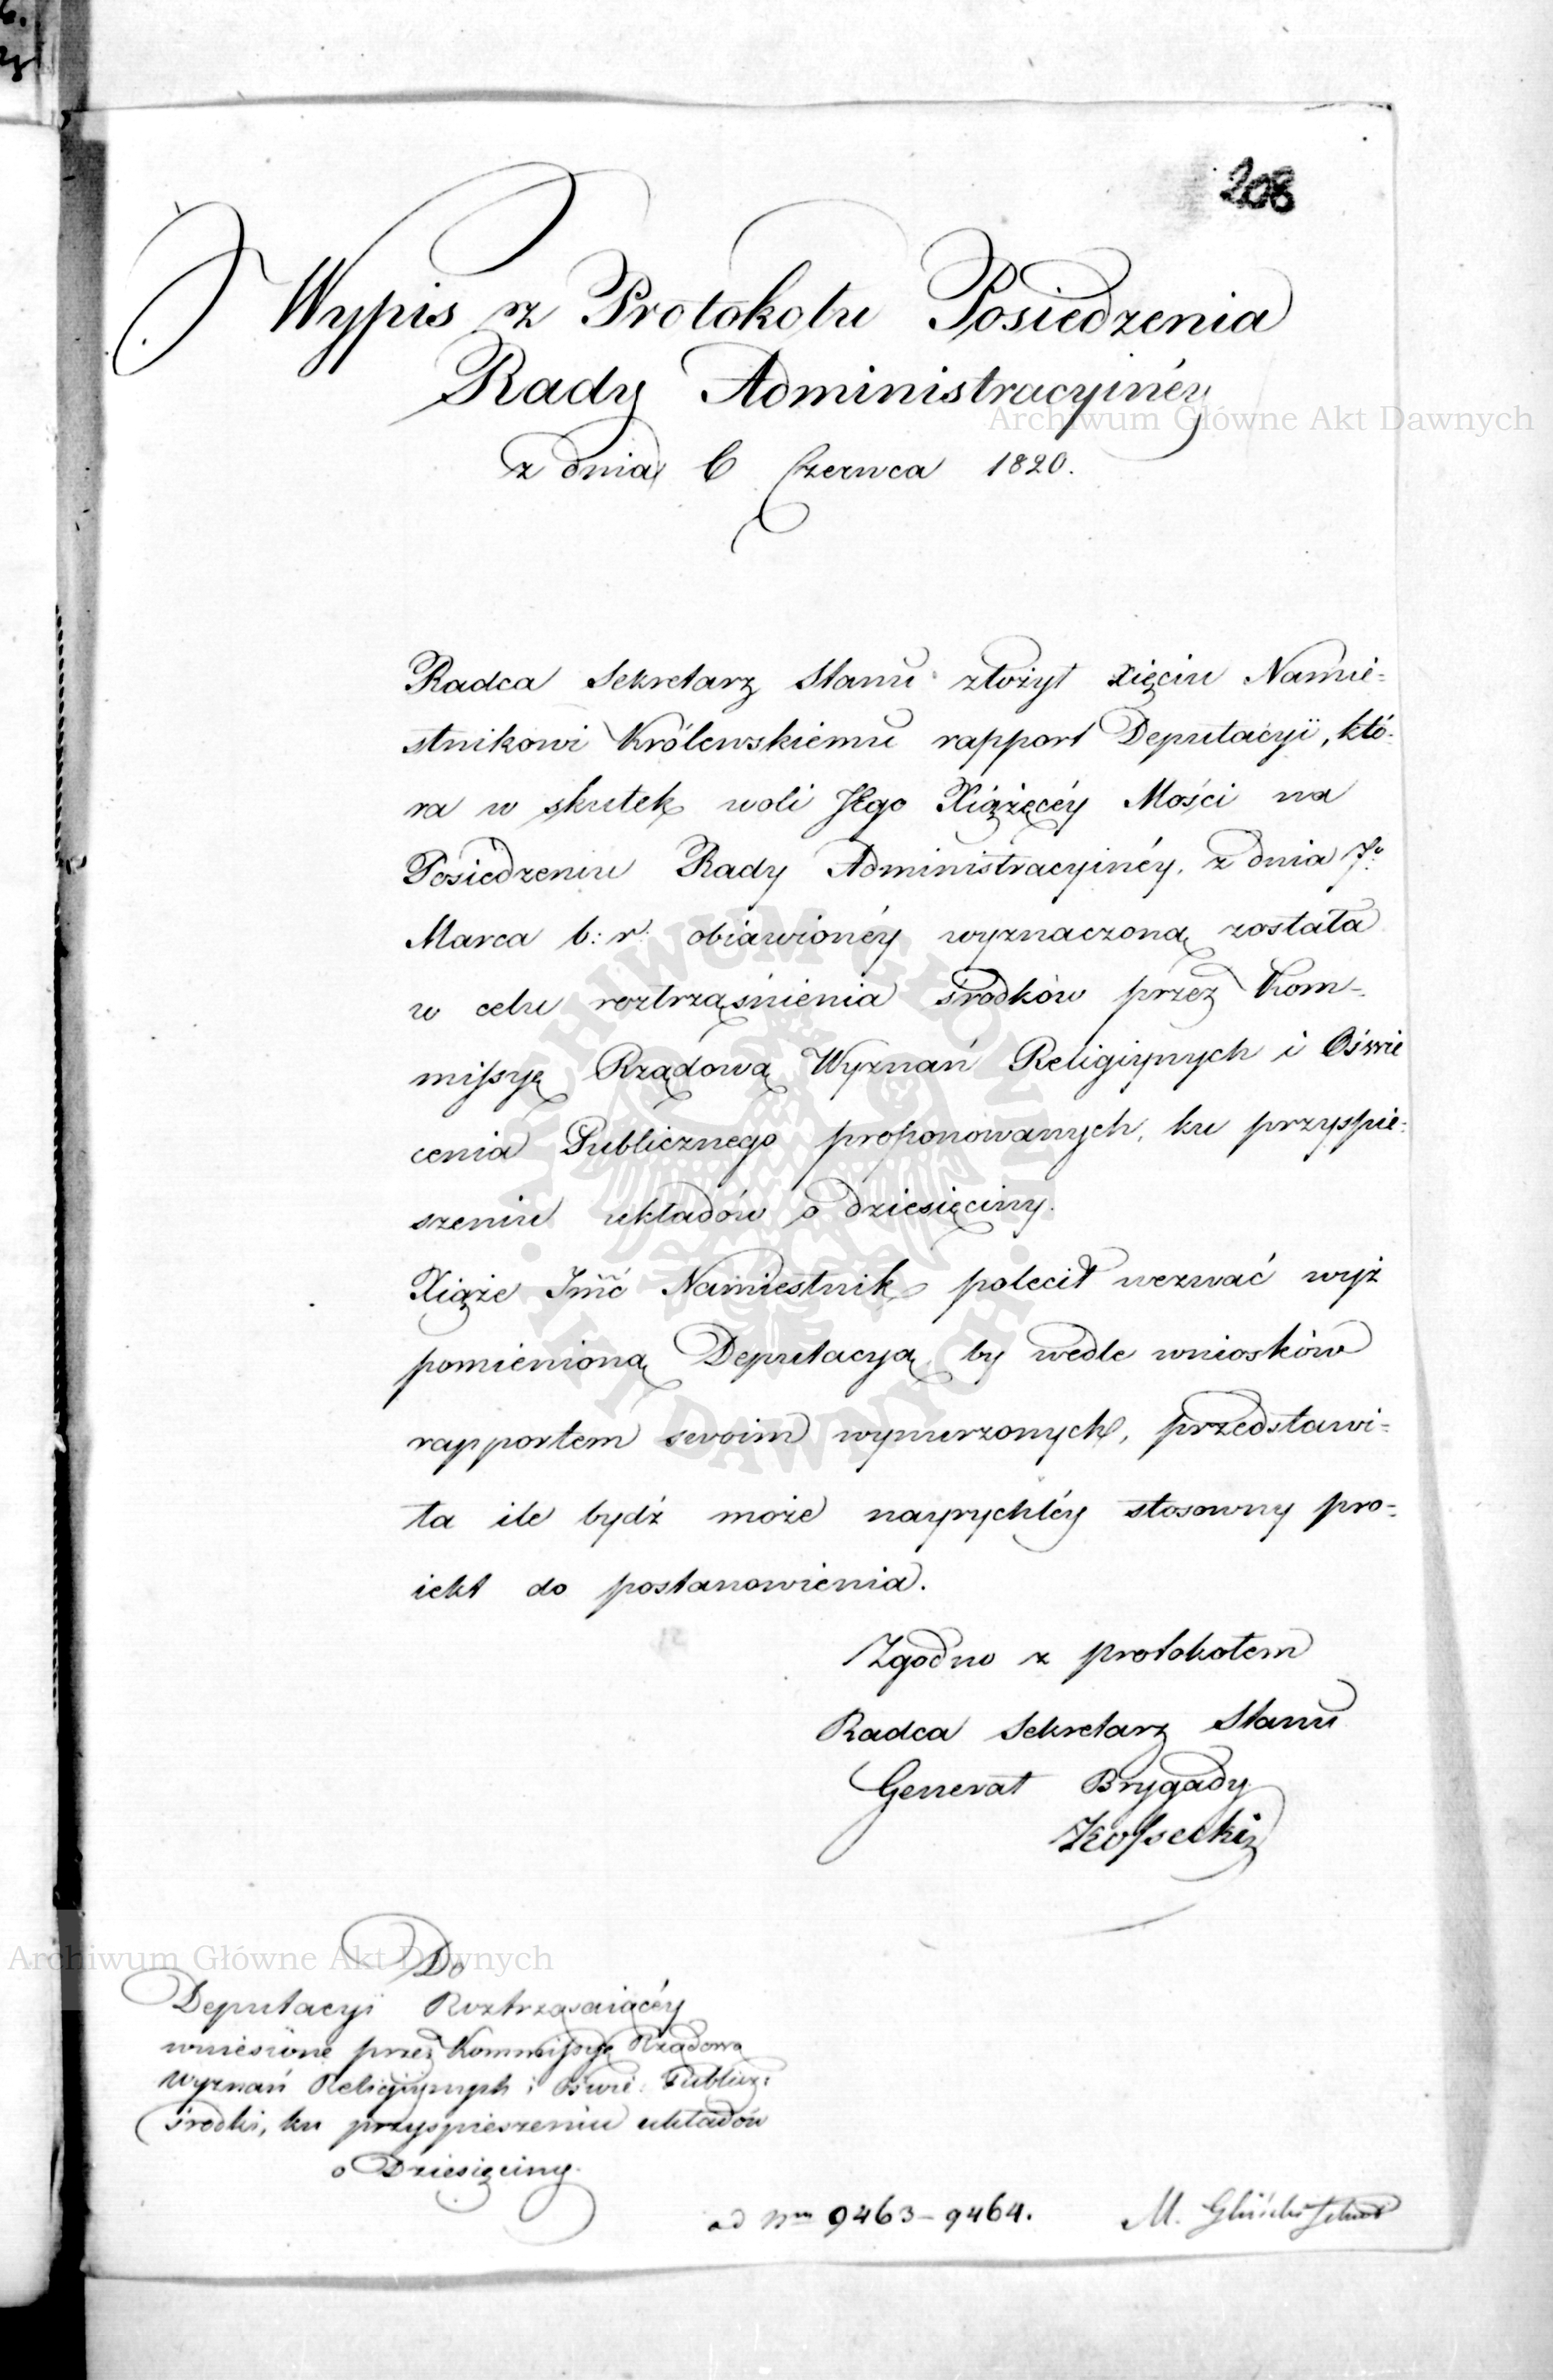 208
Wypis z Protokołu Posiedzenia
Rady Administracyinéy
z dnia 6 Czerwca 1820.
Radca Sekretarz Stanu złożył Xięciu Namie-
stnikowi Królewskiemu rapport Deputacyi, któ-
ra w skutek woli JEgo Xiążęcéy Mości na
Posiedzeniu Rady Administracyinéy, z dnia 7º
Marca b: r: obiawionéy wyznaczoną została
w celu roztrząśnienia środków przez Kom-
missyę Rządową Wyznań Religiynych i Oświe
cenia Publicznego proponowanych, ku przyspie-
szeniu układów o dziesięciny.
Xiąże Jmć Namiestnik polecił wezwać wyż
pomienioną Deputacyą by wedle wniosków
rapportem swoim wymierzonych, przedstawi-
ła ile bydź może nayrychléy stosowny pro-
iekt do postanowienia.
Zgodno z protokołem
Radca Sekretarz Stanu
Generał Brygady
Kossecki
Do
Deputacyi Roztrząsaiącéy
wniesione przez Kommissyą Rządową
Wyznań Religiynych i Oświe: Publicz:
środki, ku przyspieszeniu układów
o Dziesięciny.
ad Nm 9463-9464.
M.
Archiwum Główne Akt Dawnych
Archiwum Główne Akt Dawnych
ARCHIWUM GŁÓWNE
AKT DAWNYCH